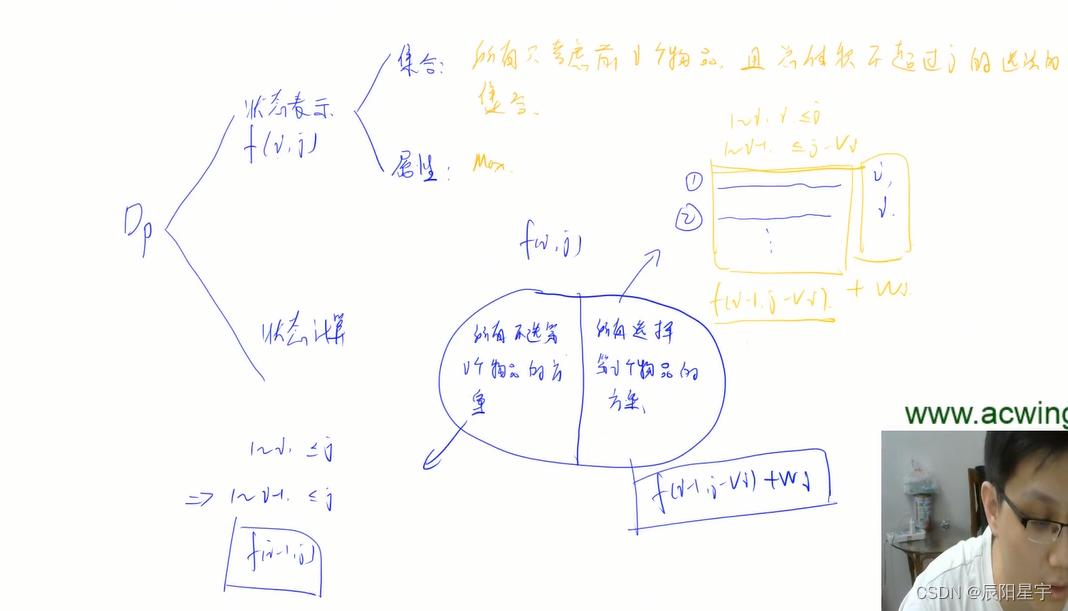 集合: 所有只考虑前i个物品, 且总体积不超过j的选法的
集合.
状态表示
f(i,j)
属性: Max.
Dp
1~i. ≤j
1~i-1. ≤j-Vi
①
②
⋮
i,
f(i-1,j-Vi). + Wi
f(i,j)
所有不选第
i个物品的方
案
所有选择
第i个物品的
方案、
状态计算
f(i-1,j-Vi)+Wi
1~i. ≤j
=> 1~i-1. ≤j
f(i-1,j)
www.acwing
CSDN @辰阳星宇